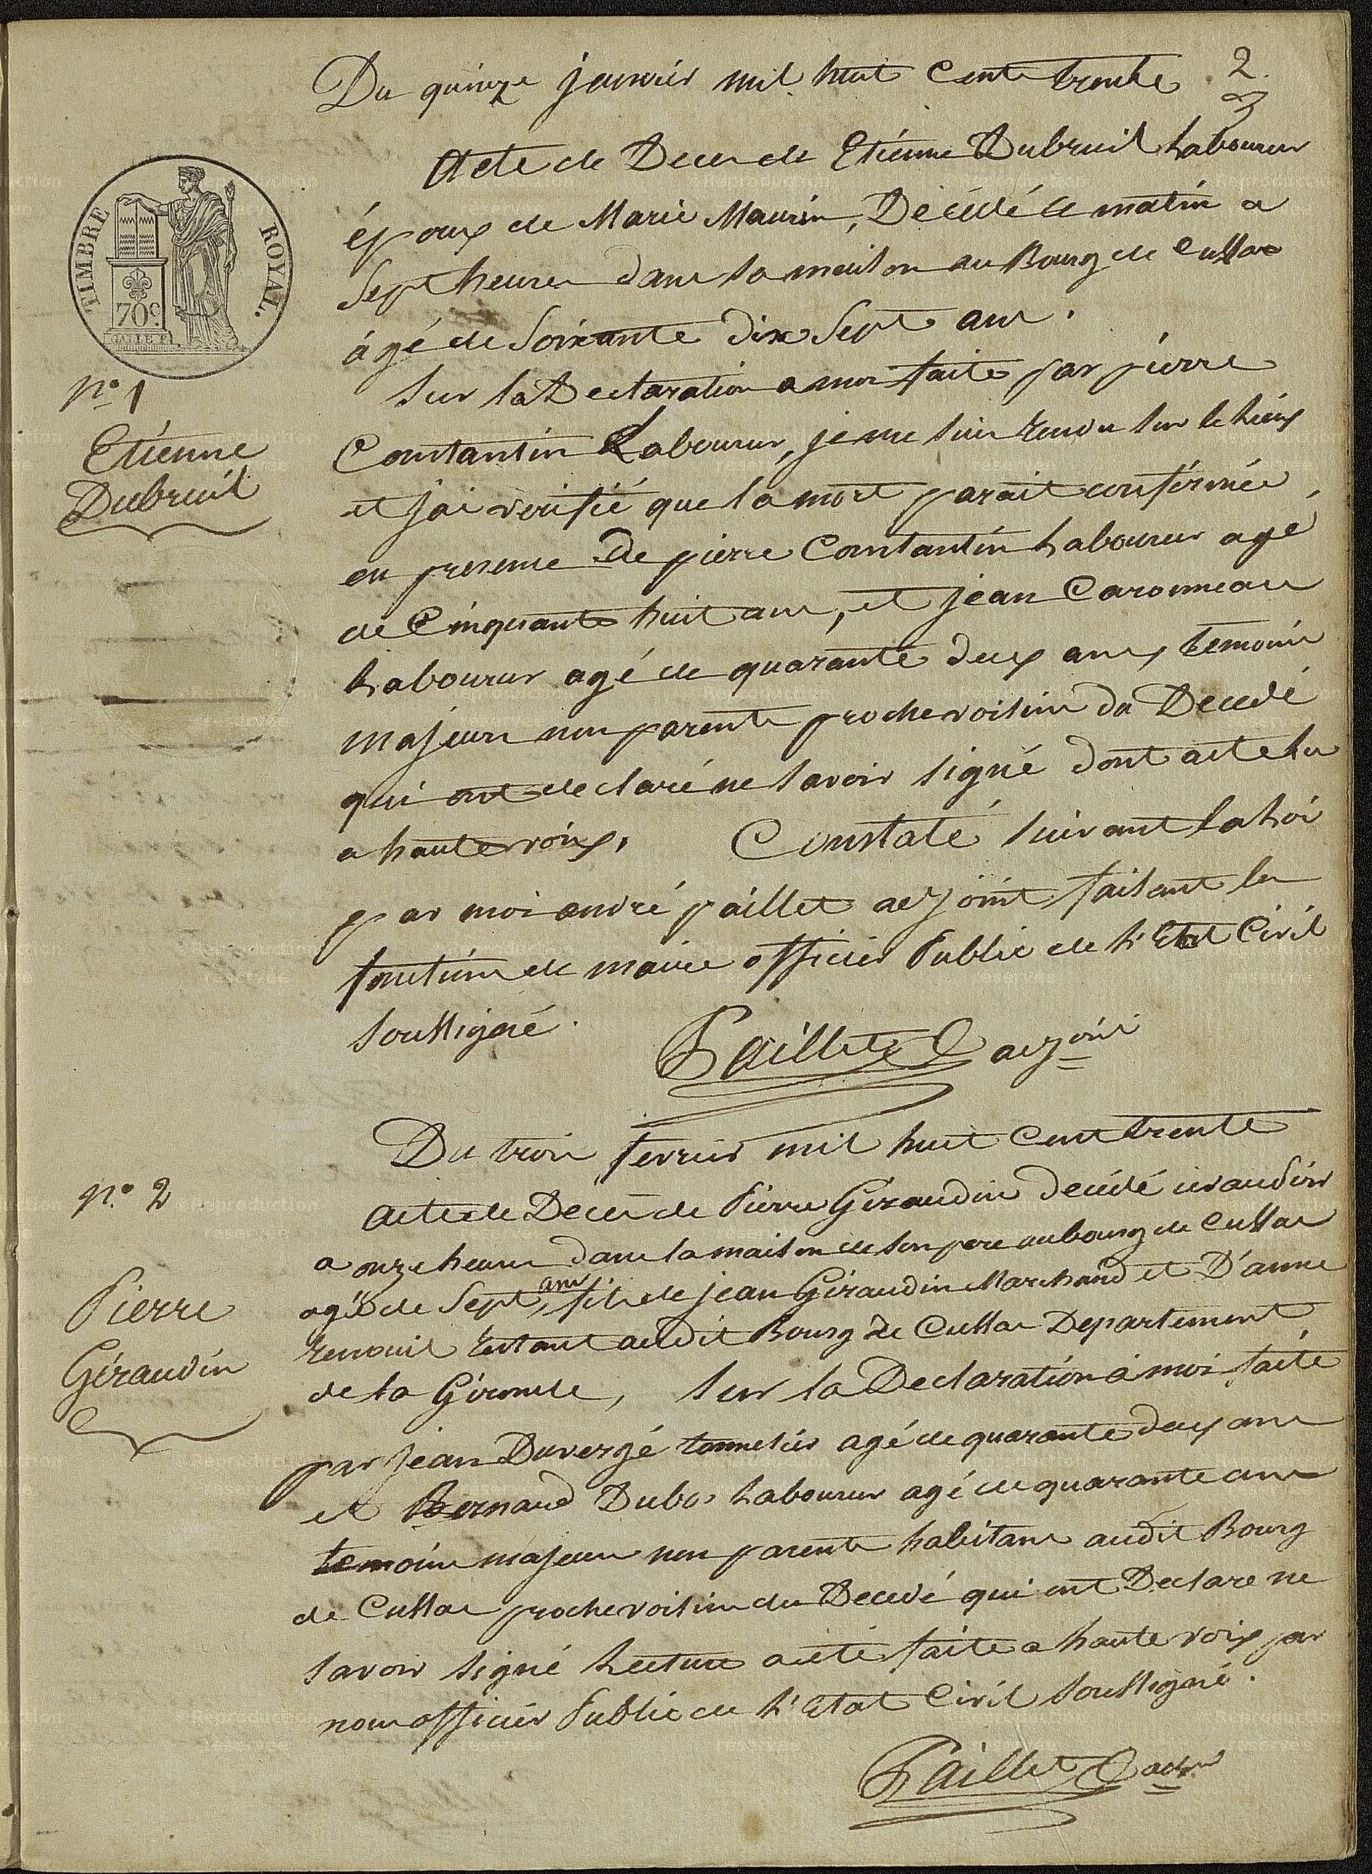 2
Du quinze janvier mil huit cent trente
Acte de Deces de Etienne Dubreuil Laboureur
époux de Marie Maurin, Décédé ce matin a
Sept heures dans sa maison au Bourg de Cussac
âgé de Soixante dix Sept ans.
TIMBRE ROYAL.
70c.
Sur la Declaration a moi faite par pierre
n.º 1
Etienne
Dubreuil
Constantin Laboureur, je me suis rendu sur le lieux
et j'ai verifié que la mort parait confirmée
en presence De pierre Constantin Laboureur agé
de Cinquante huit ans, et jean Caronneau
Laboureur agé de quarante deux ans temoins
majeurs non parents proche voisins du Decedé
qui ont declaré ne savoir signé dont acte lu
a haute voix. Constaté suivant la Loi
par moi andré paillet adjoint faisant les
fonctions de maire officier Public de l'Etat Civil
soussigné.
Paillet adjoint
Du trois fevrier mil huit cent trente
n.º 2
Acte de Deces de Pierre Giraudin decédé
a onze heures dans la maison de son pere au bourg de Cussac
agé de Sept ans, fils de jean Giraudin Marchand et D'anne
Pierre
Giraudin
restant audit Bourg de Cussac Departement
de la Gironde, sur la Declaration à moi faite
par jean Duvergé tonnelier agé de quarante deux ans
et Bernard Dubos Laboureur agé de quarante ans
temoins majeurs non parents habitans audit Bourg
de Cussac proche voisins du Decedé qui ont Declare ne
savoir signé Lecture a été faite a haute voix par
nous officier Public de l'Etat Civil soussigné.
Paillet adjt